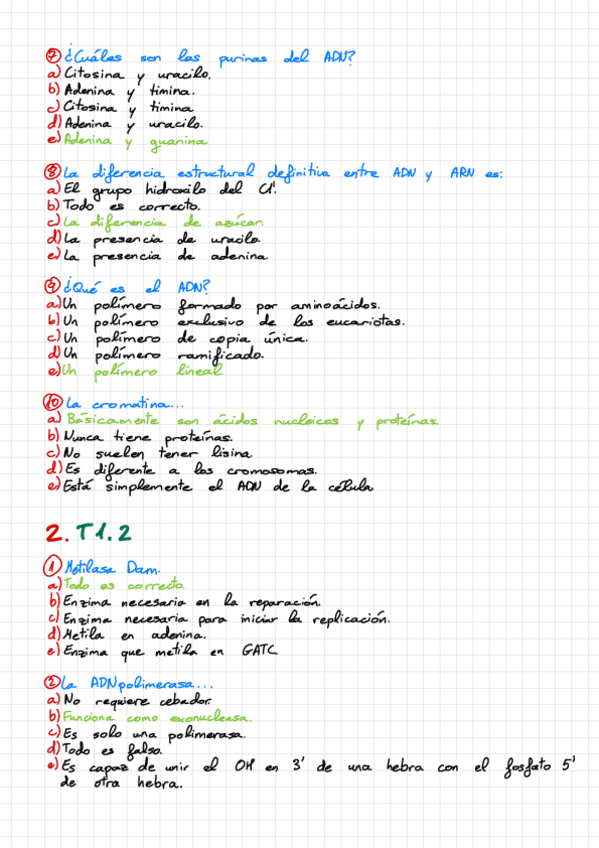 ⑦ ¿Cuáles son las purinas del ADN?
a) Citosina y uracilo.
b) Adenina y timina.
c) Citosina y timina
d) Adenina y uracilo.
e) Adenina y guanina
⑧ La diferencia estructural definitiva entre ADN y ARN es:
a) El grupo hidroxilo del C1'.
b) Todo es correcto.
c) La diferencia de azúcar.
d) La presencia de uracilo.
e) La presencia de adenina.
⑨ ¿Qué es el ADN?
a) Un polímero formado por aminoácidos.
b) Un polímero exclusivo de los eucariotas.
c) Un polímero de copia única.
d) Un polímero ramificado.
e) Un polímero lineal
⑩ La cromatina...
a) Básicamente son ácidos nucleicos y proteínas
b) Nunca tiene proteínas.
c) No suelen tener lisina
d) Es diferente a los cromosomas.
e) Está simplemente el ADN de la célula
2. T1.2
① Metilasa Dam.
a) Todo es correcto
b) Enzima necesaria en la reparación.
c) Enzima necesaria para iniciar la replicación.
d) Metila en adenina.
e) Enzima que metila en GATC
② La ADNpolimerasa...
a) No requiere cebador.
b) Funciona como exonucleasa.
c) Es solo una polimerasa.
d) Todo es falso.
e) Es capaz de unir el OH en 3' de una hebra con el fosfato 5'
de otra hebra.